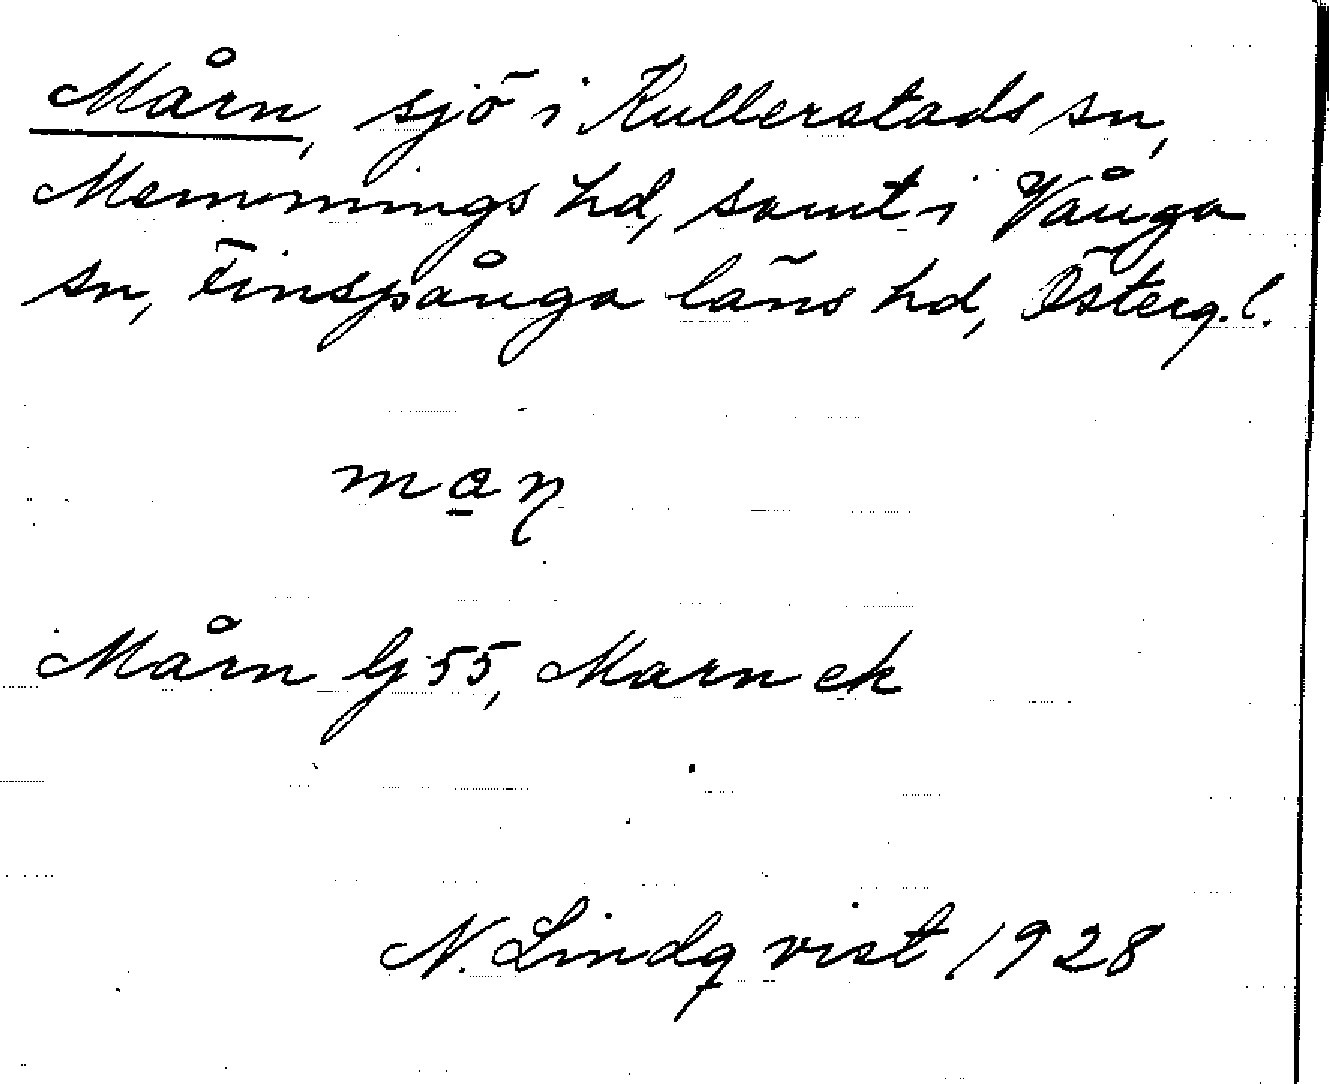 Mårn, sjö i Kullerstads sn,
Memmings hd, samt i Vånga
sn, Finspånga läns hd, Österg.l.
Mårn Gj 55, Marn ek
N. Lindqvist 1928